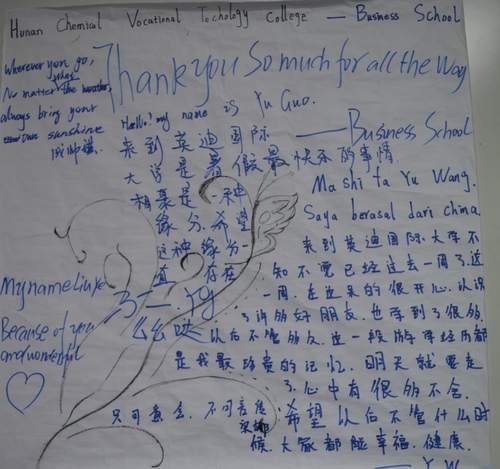 Hunan Chemical Vocational Techology College — Business School
Thank you So much for all the Way
— Business School
Wherever you go,
No matter the weather,
always bring your
own sunshine
Hello! my name is Yu Guo.
来到英迪国际
大学是暑假最快乐的事情
相集是一种
缘分.希望
这种缘分一
直 存在
3— Yg
么么哒
My name liu ye
Because of you
and wonderful
Ma shi ta Yu Wang.
Saya berasal dari china
来到英迪国际大学不
知不觉已经过去一周了.这
一周.在这呆的很开心.认识
了许多好朋友.也学到了很多
以后不管多久.这一段游学经历都
是我最珍贵的记忆.明天就要走
了.心中有很多不舍.
只可意会.不可言传
希望以后不管什么时
候.大家都能幸福.健康.
— Y.W